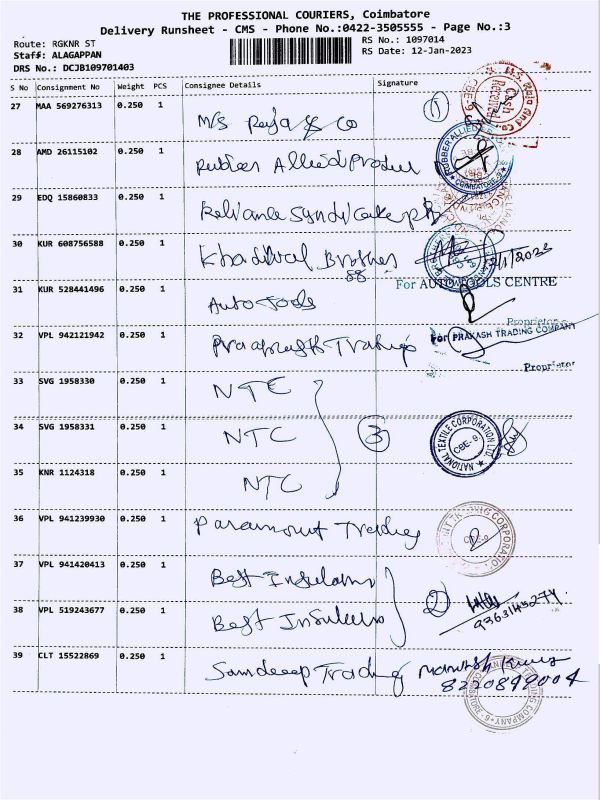 THE PROFESSIONAL COURIERS, Coimbatore
Delivery Runsheet - CMS - Phone No.:0422-3505555 - Page No.:3
Route: RGKNR ST
RS No.: 1097014
Staff: ALAGAPPAN
RS Date: 12-Jan-2023
DRS No.: DCJB109701403
S No Consignment No Weight PCS Consignee Details Signature
27 MAA 569276313 0.250 1 M/S Raja & Co 1
Cash
Received
28 AMD 26115102 0.250 1 Rubber Allied Produc
RUBBER ALLIED
COIMBATORE
29 EDQ 15860833 0.250 1 Reliance Syndicate
30 KUR 608756588 0.250 1 Khadilwal Brothers
31 KUR 528441496 0.250 1 Auto tools
For AUTO TOOLS CENTRE
Proprietor
32 VPL 942121942 0.250 1 Prakash Trading
For PRAKASH TRADING COMPANY
Proprietor
33 SVG 1958330 0.250 1 NTC
34 SVG 1958331 0.250 1 NTC 3
NATIONAL TEXTILE CORPORATION LTD.
CBE-9
35 KNR 1124318 0.250 1 NTC
36 VPL 941239930 0.250 1 Paramount Trading
CORPORATION
37 VPL 941420413 0.250 1 Best Insulations
38 VPL 519243677 0.250 1 Best 2
9363145274
39 CLT 15522869 0.250 1 Sandeep Trading
8220849004
TRADING COMPANY